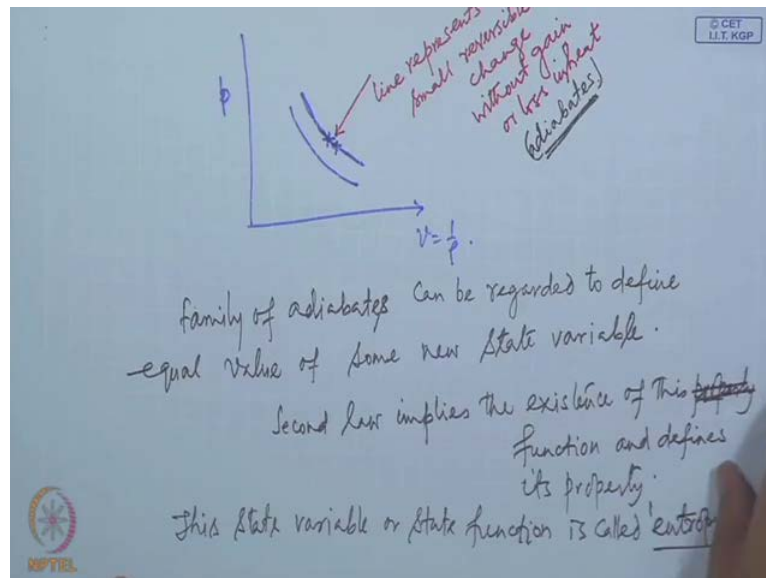 © CET
I.I.T. KGP
line represents
small reversible
change
without gain
or loss in heat
(adiabates)
p
v = 1/ρ.
family of adiabates can be regarded to define
equal value of some new state variable.
Second law implies the existence of this
function and defines
its property.
This state variable or state function is called 'entrop
NPTEL